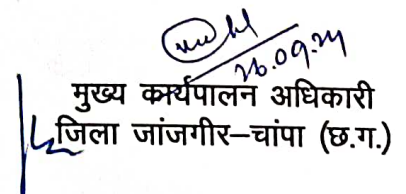 26.09.24
मुख्य कार्यपालन अधिकारी
जिला जांजगीर–चांपा (छ.ग.)